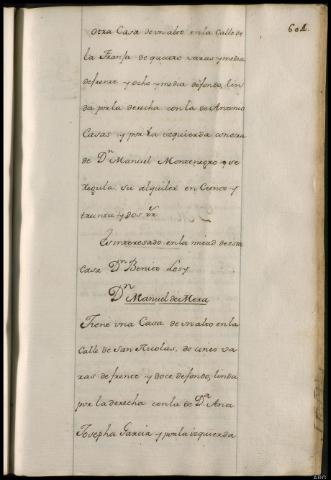 604.
otra Casa de un alto en la Calle de
la Franja de quatro varas y media
de frente y ocho y media de fondo, lin
da por la derecha con la de Antonio
Casas y por la izquierda con era
de Dn Manuel Montenegro que se
regula su alquiler en Ciento y
treinta y dos rr.s
Es interesado en la mitad de esta
Casa Dn Benito Losy
Dn Manuel de Mera
Tiene una Casa de un alto en la
Calle de San Nicolas, de unes va
ras de frente y doce de fondo, linda
por la derecha con la de D.a Ana
Josepha Garcia y por la izquierda